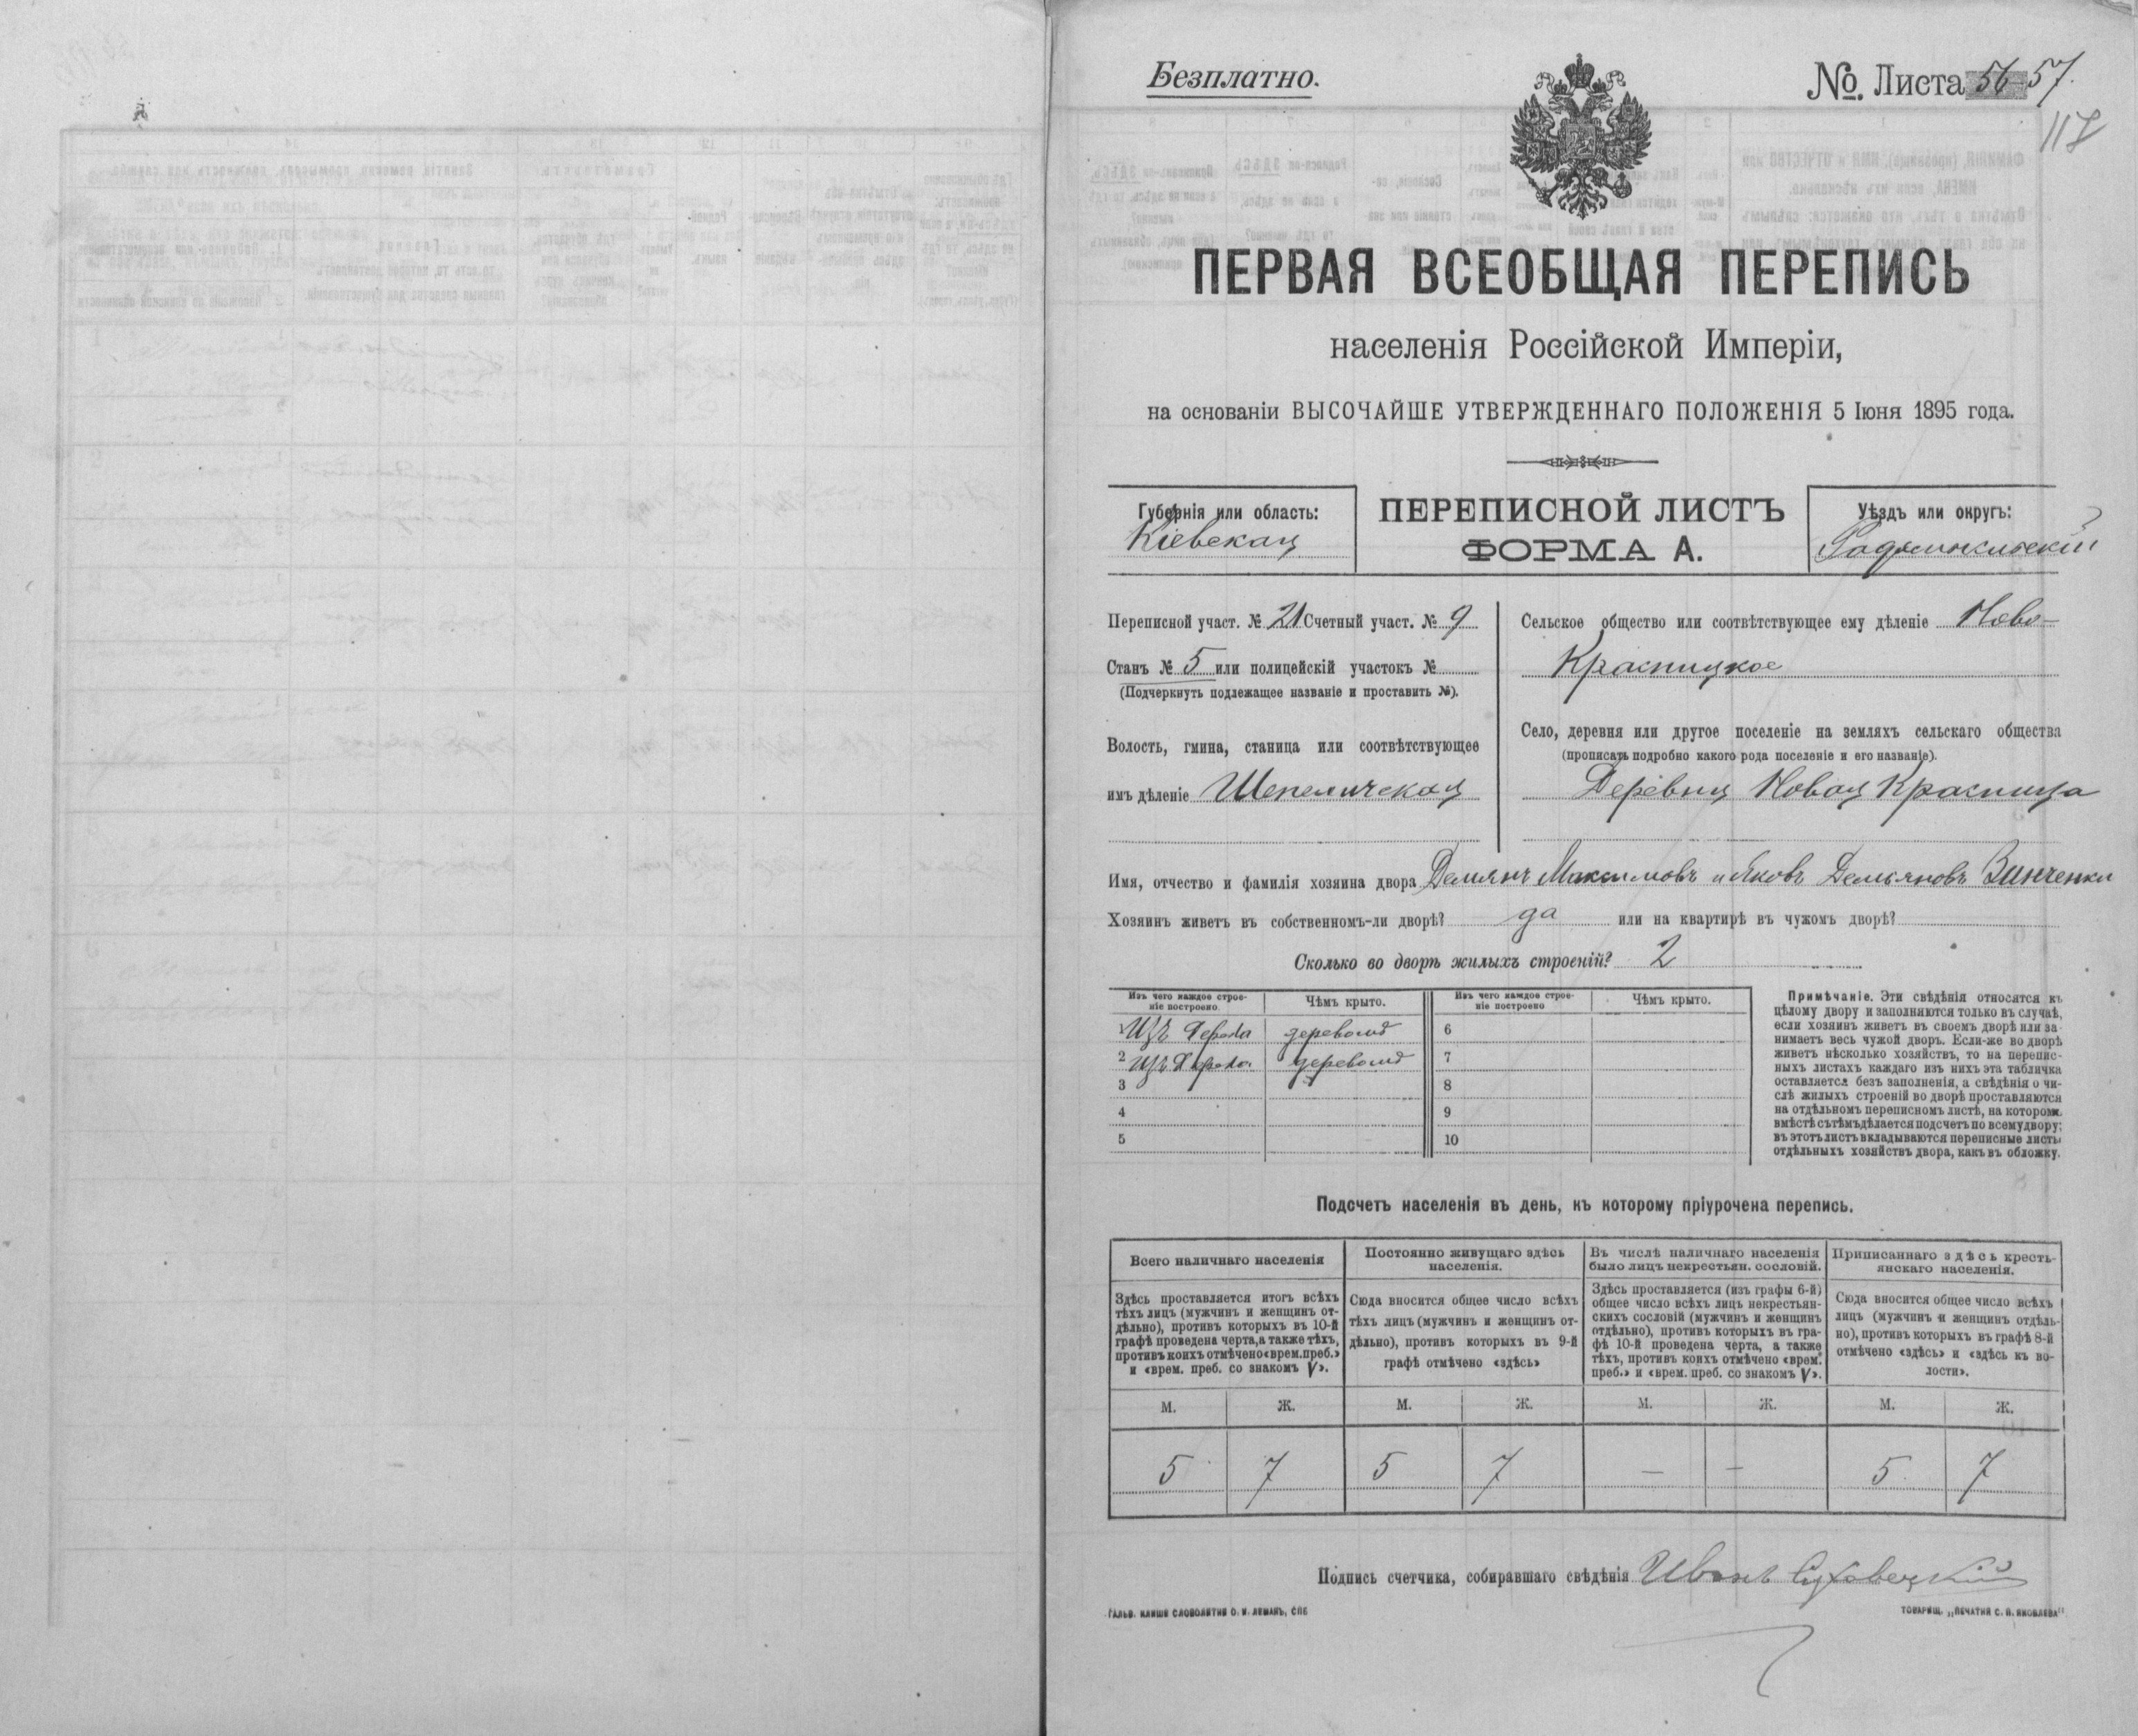 Безплатно.
№. Листа 56-57.
117
ПЕРВАЯ ВСЕОБЩАЯ ПЕРЕПИСЬ
населенія Россійской Имперіи,
на основаніи ВЫСОЧАЙШЕ УТВЕРЖДЕННАГО ПОЛОЖЕНІЯ 5 Іюня 1895 года.
Губернія или область:
Кіевская
ПЕРЕПИСНОЙ ЛИСТЪ
ФОРМА А.
Уѣздъ или округъ:
Радомысльскій
Переписной участ. № 21 Счетный участ. № 9
Станъ № 5 или полицейскій участокъ №
(Подчеркнуть подлежащее названіе и проставить №).
Волость, гмина, станица или соотвѣтствующее
имъ дѣленіе Шепеличская
Сельское общество или соотвѣтствующее ему дѣленіе Ново-
Красницкое
Село, деревня или другое поселеніе на земляхъ сельскаго общества
(прописать подробно какого рода поселеніе и его названіе).
Деревня Новая Красница
Имя, отчество и фамилія хозяина двора Демянъ Максимовъ и Яковъ Демьяновъ Зинченки
Хозяинъ живетъ въ собственномъ-ли дворѣ? да или на квартирѣ въ чужомъ дворѣ?
Сколько во дворѣ жилыхъ строеній? 2
Изъ чего каждое строе-
ніе построено
Чѣмъ крыто.
Изъ чего каждое строе-
ніе построено
Чѣмъ крыто.
1 Изъ дерева деревомъ 6
2 Изъ дерева деревомъ 7
3 8
4 9
5 10
Примѣчаніе. Эти свѣдѣнія относятся къ
цѣлому двору и заполняются только въ случаѣ,
если хозяинъ живетъ въ своемъ дворѣ или за-
нимаетъ весь чужой дворъ. Если-же во дворѣ
живетъ нѣсколько хозяйствъ, то на перепис-
ныхъ листахъ каждаго изъ нихъ эта табличка
оставляется безъ заполненія, а свѣдѣнія о чи-
слѣ жилыхъ строеній во дворѣ проставляются
на отдѣльномъ переписномъ листѣ, на которомъ
вмѣстѣ сътѣмъ дѣлается подсчетъ по всему двору;
въ этотъ листъ вкладываются переписные листы
отдѣльныхъ хозяйствъ двора, какъ въ обложку.
Подсчетъ населенія въ день, къ которому пріурочена перепись.
Всего наличнаго населенія
Здѣсь проставляется итогъ всѣхъ
тѣхъ лицъ (мужчинъ и женщинъ от-
дѣльно), противъ которыхъ въ 10-й
графѣ проведена черта, а также тѣхъ,
противъ коихъ отмѣчено «врем. преб.»
и «врем. преб. со знакомъ V».
Постоянно живущаго здѣсь
населенія.
Сюда вносится общее число всѣхъ
тѣхъ лицъ (мужчинъ и женщинъ от-
дѣльно), противъ которыхъ въ 9-й
графѣ отмѣчено «здѣсь»
Въ числѣ наличнаго населенія
было лицъ некрестьян. сословій.
Здѣсь проставляется (изъ графы 6-й)
общее число всѣхъ лицъ некрестьян-
скихъ сословій (мужчинъ и женщинъ
отдѣльно), противъ которыхъ въ гра-
фѣ 10-й проведена черта, а также
тѣхъ, противъ коихъ отмѣчено «врем.
преб.» и «врем. преб. со знакомъ V».
Приписаннаго здѣсь кресть-
янскаго населенія.
Сюда вносится общее число всѣхъ
лицъ (мужчинъ и женщинъ отдѣль-
но), противъ которыхъ въ графѣ 8-й
отмѣчено «здѣсь» и «здѣсь къ во-
лости».
М. Ж. М. Ж. М. Ж. М. Ж.
5 7 5 7 — — 5 7
Подпись счетчика, собиравшаго свѣдѣнія Иванъ
ГАЛЬВ. КЛИШЕ СЛОВОЛИТНИ О. И. ЛЕМАНЪ, СПБ
ТОВАРИЩ. „ПЕЧАТНЯ С. П. ЯКОВЛЕВА“